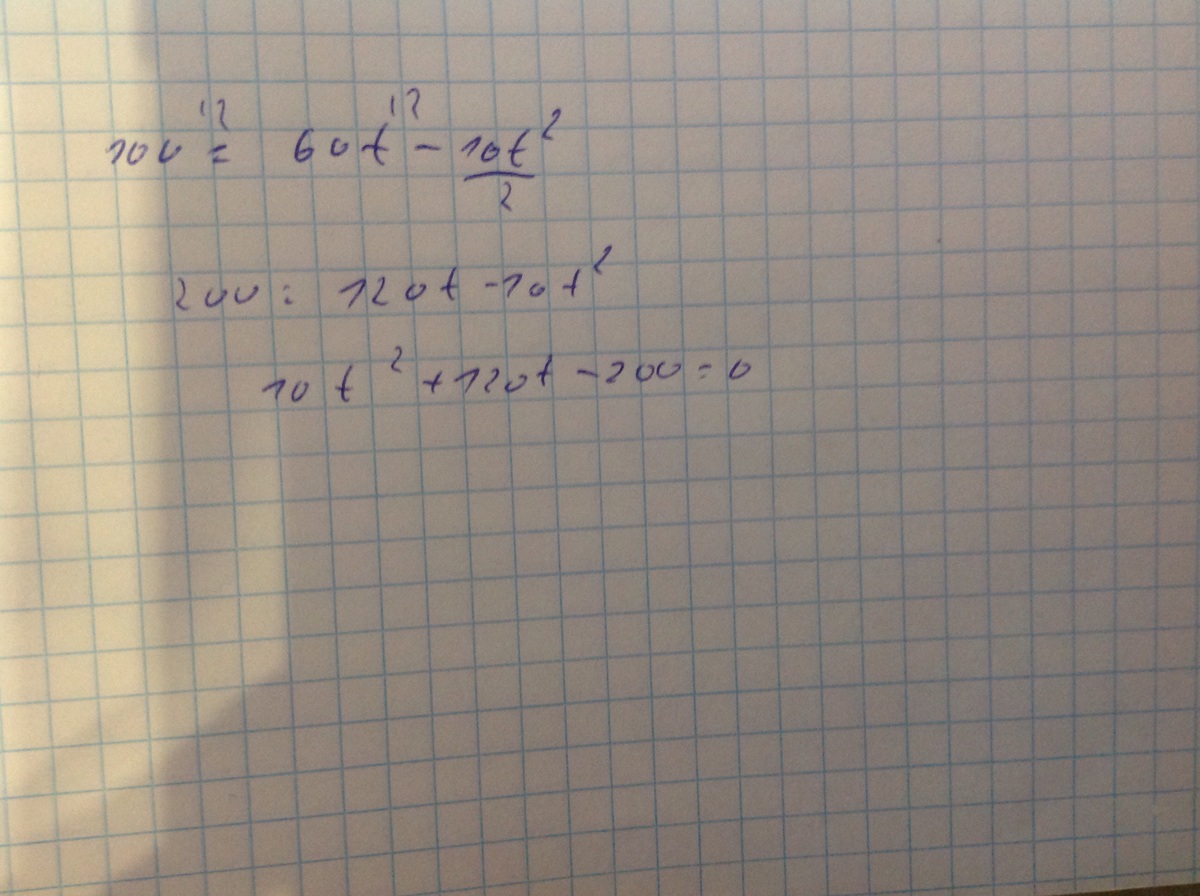 100 = 60t - 10t²/2
200 = 120t - 10t²
10t² + 120t - 200 = 0